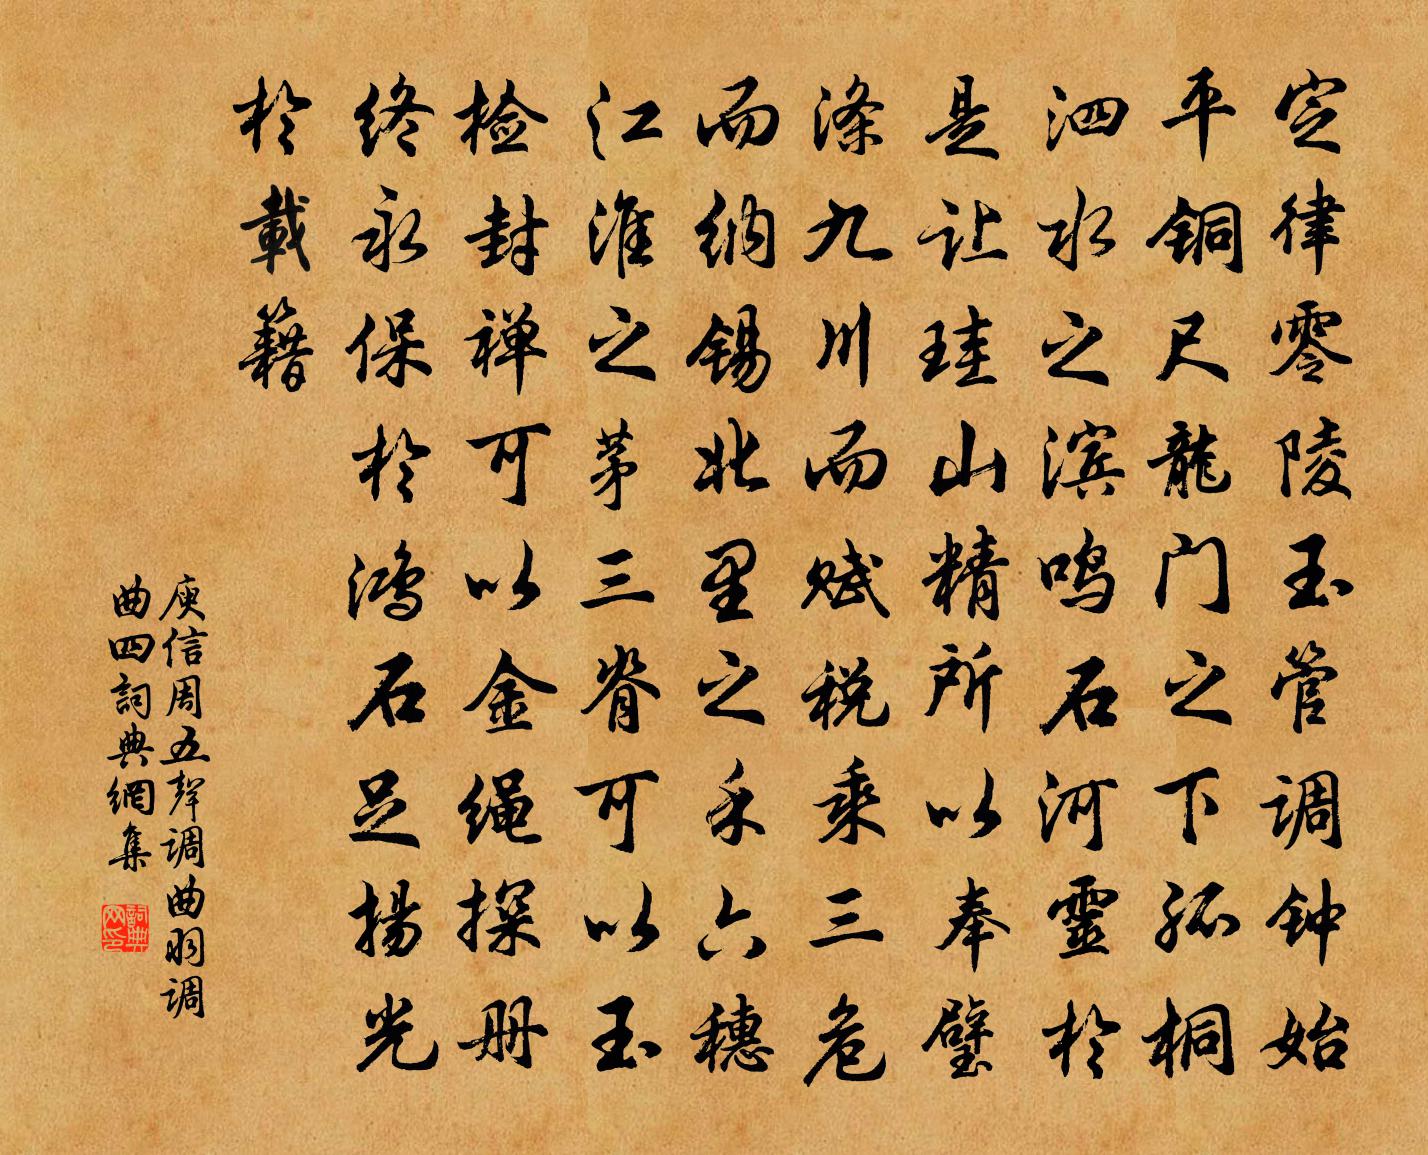 定律零陵玉管调钟始
平铜尺龍门之下孤桐
泗水之滨鸣石河靈於
是让珪山精所以奉璧
涤九川而赋税乘三危
而纳锡北里之禾六穗
江淮之茅三脊可以玉
检封禅可以金绳探册
终永保於鸿石足揚光
於載籍
庾信周五聲调曲羽调
曲四詞典網集
詞典
网印